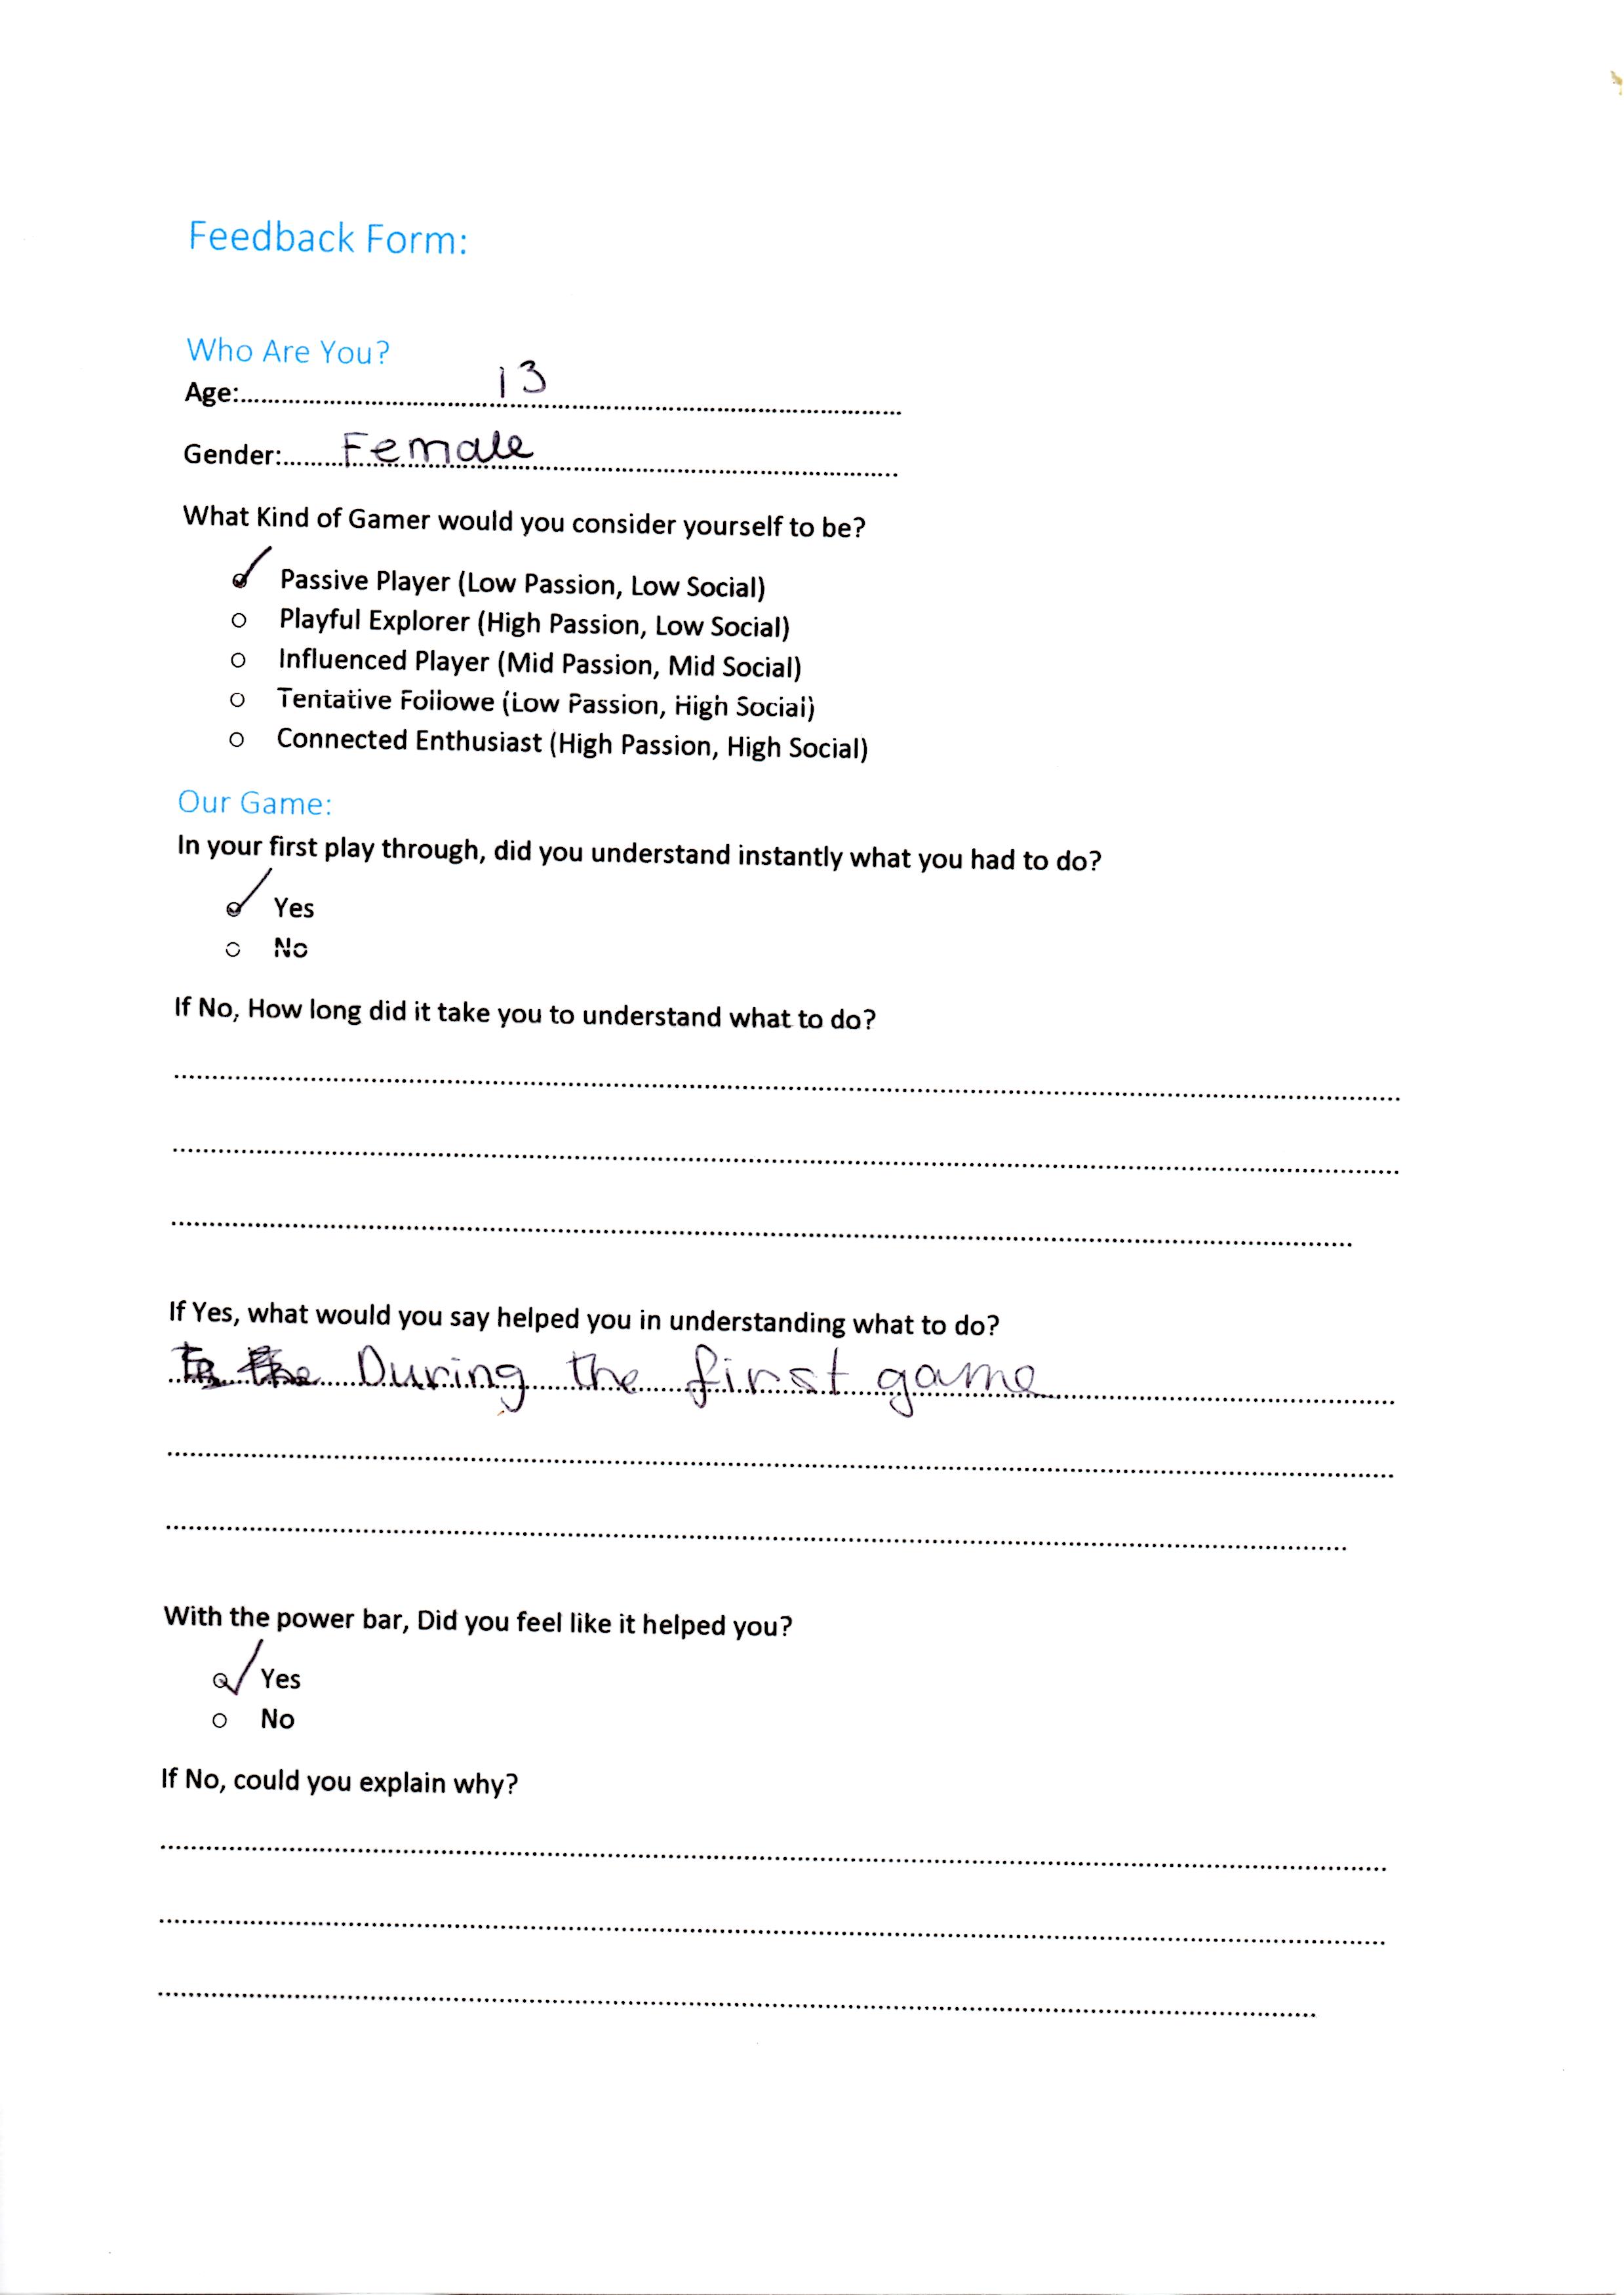 Feedback Form:
Who Are You?
Age:.......... 13
Gender:.......... Female
What Kind of Gamer would you consider yourself to be?
Passive Player (Low Passion, Low Social)
Playful Explorer (High Passion, Low Social)
Influenced Player (Mid Passion, Mid Social)
Tentative Followe (Low Passion, High Social)
Connected Enthusiast (High Passion, High Social)
Our Game:
In your first play through, did you understand instantly what you had to do?
Yes
No
If No, How long did it take you to understand what to do?
If Yes, what would you say helped you in understanding what to do?
During the first game
With the power bar, Did you feel like it helped you?
Yes
No
If No, could you explain why?